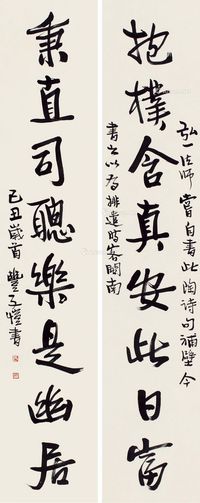 抱樸含真安此日富
秉直司聰樂是幽居
弘一法師嘗自書此陶詩句補壁今
書之以為排遣時客閩南
己丑歲首豐子愷書